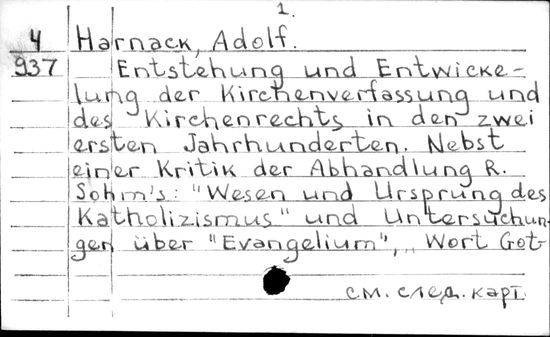 1.
4 Harnack, Adolf.
937 Entstehung und Entwicke-
lung der Kirchenverfassung und
des Kirchenrechts in den zwei
ersten Jahrhunderten. Nebst
einer Kritik der Abhandlung R.
Sohm's: "Wesen und Ursprung des
Katholizismus" und Untersuchun-
gen über "Evangelium", „Wort Got-
см. след. карт.